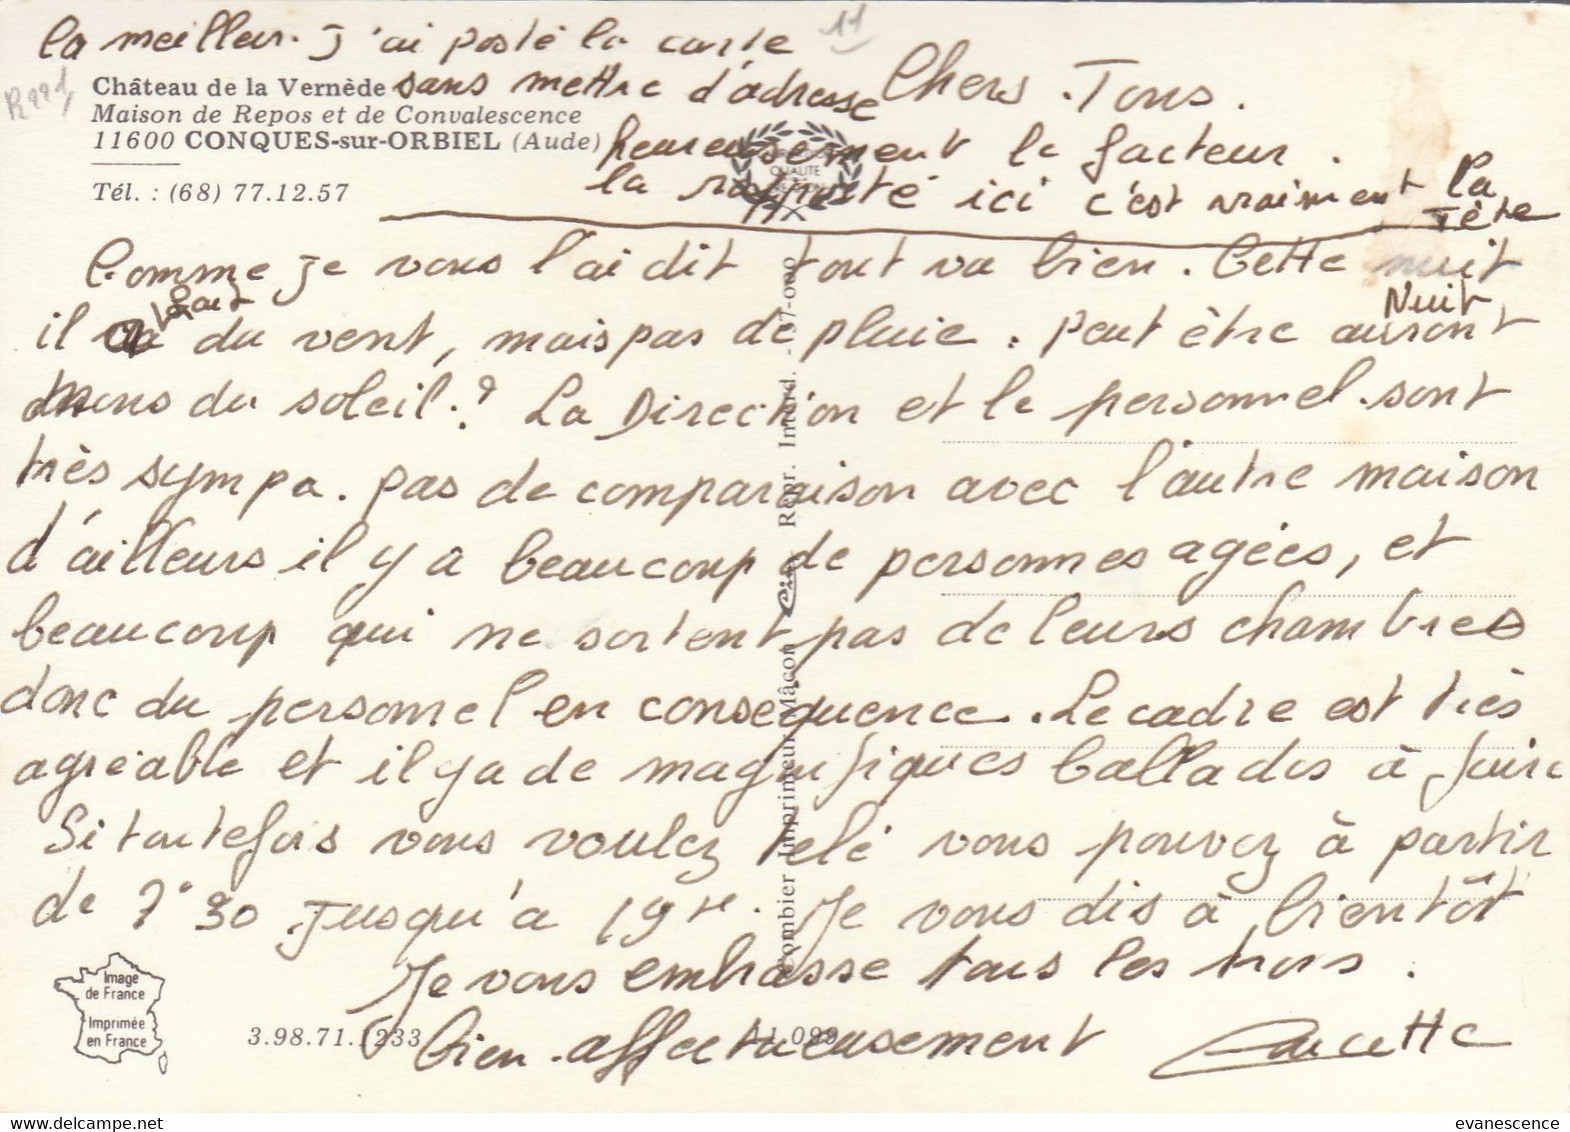 la meilleur. J'ai posté la carte 11
Château de la Vernède sans mettre d'adresse Chers Tous.
Maison de Repos et de Convalescence
11600 CONQUES-sur-ORBIEL (Aude) heureusement le facteur.
QUALITE
Tél. : (68) 77.12.57 la rapporté ici c'est vraiment la Tète
Comme je vous l'ai dit tout va bien. Cette nuit
Nuit
il a fait du vent, mais pas de pluie. Peut être auront
nous du soleil.? La Direction et le personnel sont
très sympa. pas de comparaison avec l'autre maison
d'ailleurs il y a beaucoup de personnes agées, et
beaucoup qui ne sortent pas de leurs chambres
donc du personnel en consequence. Le cadre est très
agréable et il y a de magnifiques ballades à faire
Si toutefois vous voulez telé vous pouvez à partir
de 7°30 Jusqu'a 19re. Je vous dis à bientôt
Je vous embrasse tous les trois.
bien affectueusement
Image
de France
Imprimée
en France
3.98.71.1233
11.099
Combier Imprimeur Mâcon Cim Repr. Interd.
evanescence